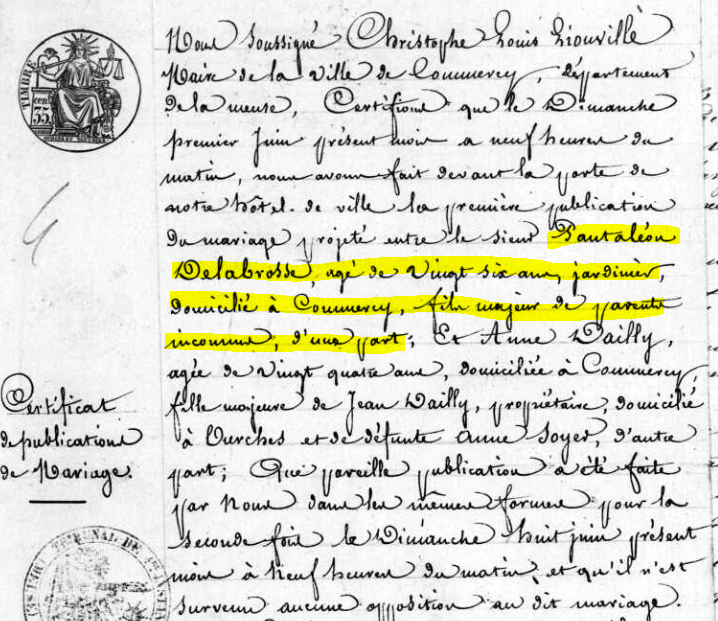 TIMBRE
35
cen
Nous Soussigné Christophe Louis Liouville
Maire de la ville de Commercy, département
de la meuse, Certifions que le Dimanche
premier Juin présent mois a neuf heures du
matin, nous avons fait devant la porte de
notre hôtel-de ville la première publication
du mariage projeté entre le sieur Pantaléon
Delabrosse, agé de vingt six ans, jardinier,
domicilié à Commercy, fils majeur de parents
inconnus, d'une part; Et Anne Dailly,
agée de vingt quatre ans, domiciliée à Commercy,
fille majeure de Jean Dailly, propriétaire, domicilié
à Ourches et de défunte Anne Soyer, d'autre
part; Que pareille publication a été faite
par Nous dans les mêmes formes pour la
seconde fois le Dimanche huit juin présent
mois à neuf heures du matin et qu'il n'est
survenu aucune opposition au dit mariage.
Certificat
de publications
de Mariage.
TRIBUNAL DE